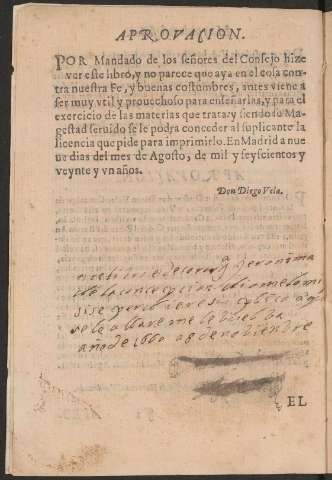 APROVACION.
POR Mandado de los señores del Consejo hize
ver este libro, y no parece que aya en el cosa con-
tra nuestra Fe, y buenas costumbres, antes viene a
ser muy vtil y prouechoso para enseñarlas, y para el
exercicio de las materias que trata: y siendo su Ma-
gestad seruido se le podra conceder al suplicante la
licencia que pide para imprimirlo. En Madrid a nue
ue dias del mes de Agosto, de mil y seyscientos y
veynte y vn años.
Don Diego Vela.
de soror geronima
de la concepcion
si se perdiere
se le allare me le buelba
año de 1660 a 8 de nobiembre
EL